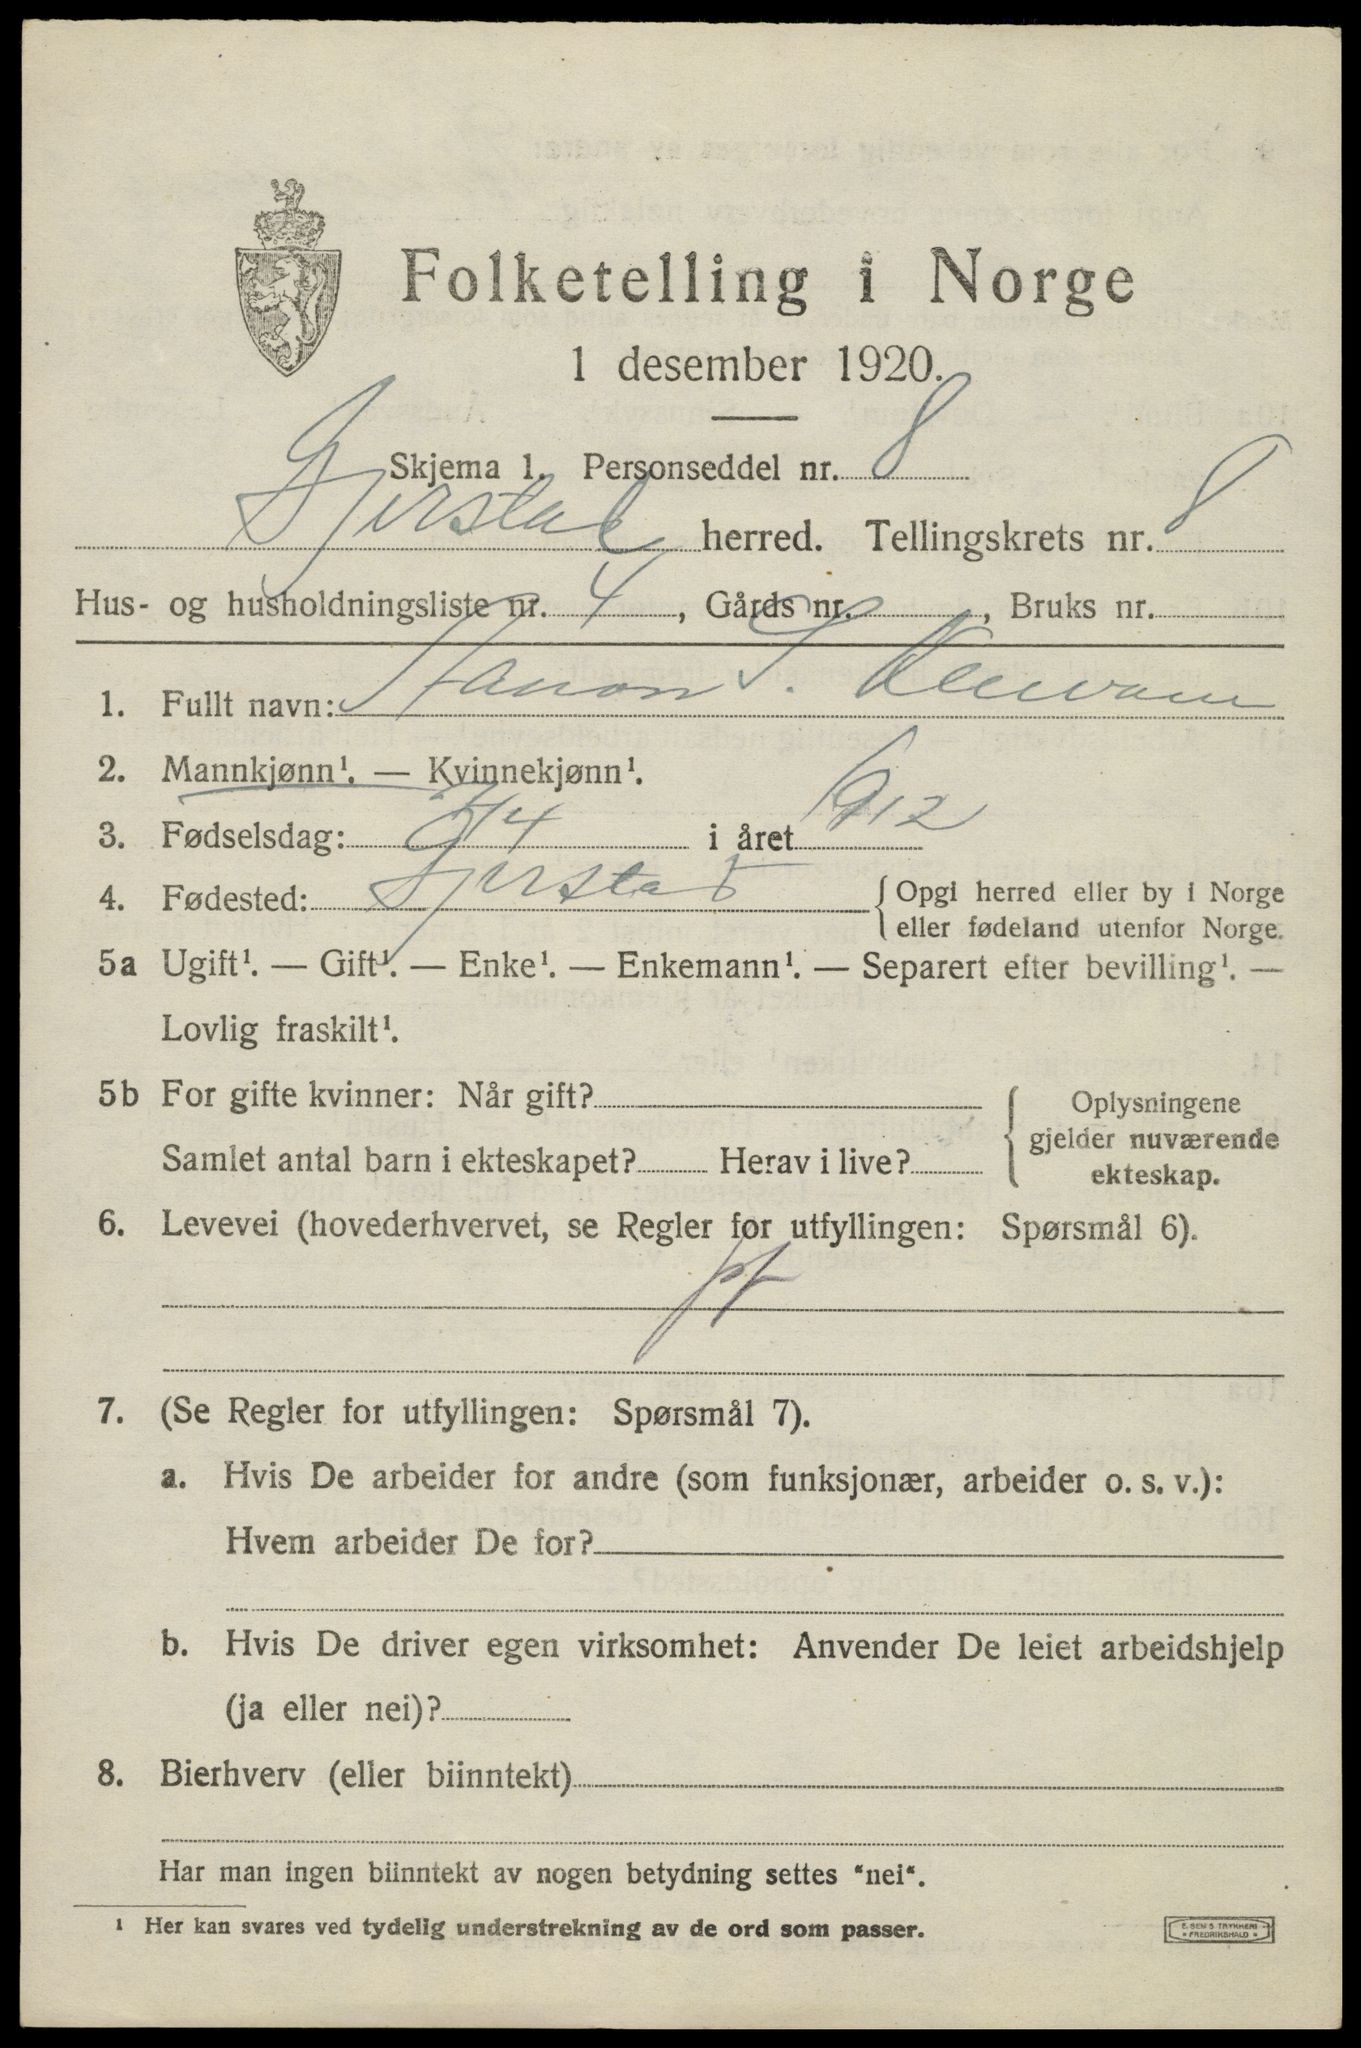 Folketelling i Norge
1 desember 1920.
Skjema 1. Personseddel nr. 8
Gjerstad herred. Tellingskrets nr. 8
Hus- og husholdningsliste nr. 4, Gårds nr. , Bruks nr.
1. Fullt navn: S.
2. Mannkjønn¹. — Kvinnekjønn¹.
3. Fødselsdag: i året 1912
4. Fødested: Gjerstad {Opgi herred eller by i Norge
eller fødeland utenfor Norge.
5a Ugift¹. — Gift¹. — Enke¹. — Enkemann¹. — Separert efter bevilling¹. —
Lovlig fraskilt¹.
5b For gifte kvinner: Når gift?
Samlet antal barn i ekteskapet? Herav i live?
{Oplysningene
gjelder nuværende
ekteskap.
6. Levevei (hovederhvervet, se Regler for utfyllingen: Spørsmål 6).
7. (Se Regler for utfyllingen: Spørsmål 7).
a. Hvis De arbeider for andre (som funksjonær, arbeider o. s. v.):
Hvem arbeider De for?
b. Hvis De driver egen virksomhet: Anvender De leiet arbeidshjelp
(ja eller nei)?
8. Bierhverv (eller biinntekt)
Har man ingen biinntekt av nogen betydning settes "nei".
¹ Her kan svares ved tydelig understrekning av de ord som passer.
E. SEM'S TRYKKERI
* FREDRIKSHALD *